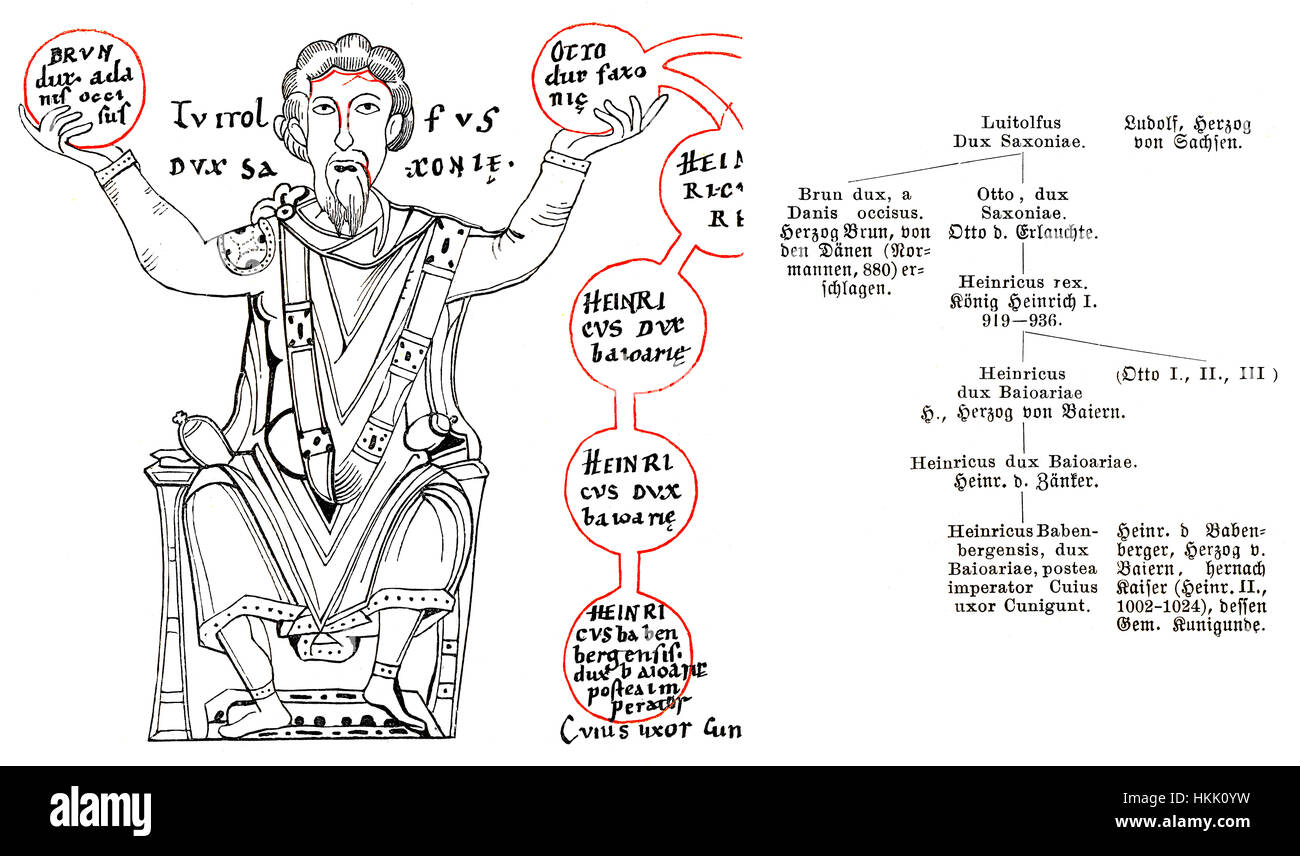 BRVN
dux. a da
nis occi
sus
LVITOL FVS
DVX SA XONIĘ.
OTTO
dux saxo
nię
HEIN
RI.CV
RE
HEINRI
CVS DVX
baioarię
HEINRI
CVS DVX
baioarię
HEINRI
CVS baben
bergensis.
dux baioarię
postea im
perator
Cuius uxor Cun
Luitolfus
Dux Saxoniae.
Ludolf, Herzog
von Sachsen.
Brun dux, a
Danis occisus.
Herzog Brun, von
den Dänen (Nor=
mannen, 880) er=
schlagen.
Otto, dux
Saxoniae.
Otto d. Erlauchte.
Heinricus rex.
König Heinrich I.
919—936.
Heinricus
dux Baioariae
H., Herzog von Baiern.
(Otto I., II., III)
Heinricus dux Baioariae.
Heinr. d. Zänker.
Heinricus Baben-
bergensis, dux
Baioariae, postea
imperator Cuius
uxor Cunigunt.
Heinr. d Baben=
berger, Herzog v.
Baiern, hernach
Kaiser (Heinr. II.,
1002-1024), dessen
Gem. Kunigunde.
alamy
Image ID: HKK0YW
www.alamy.com